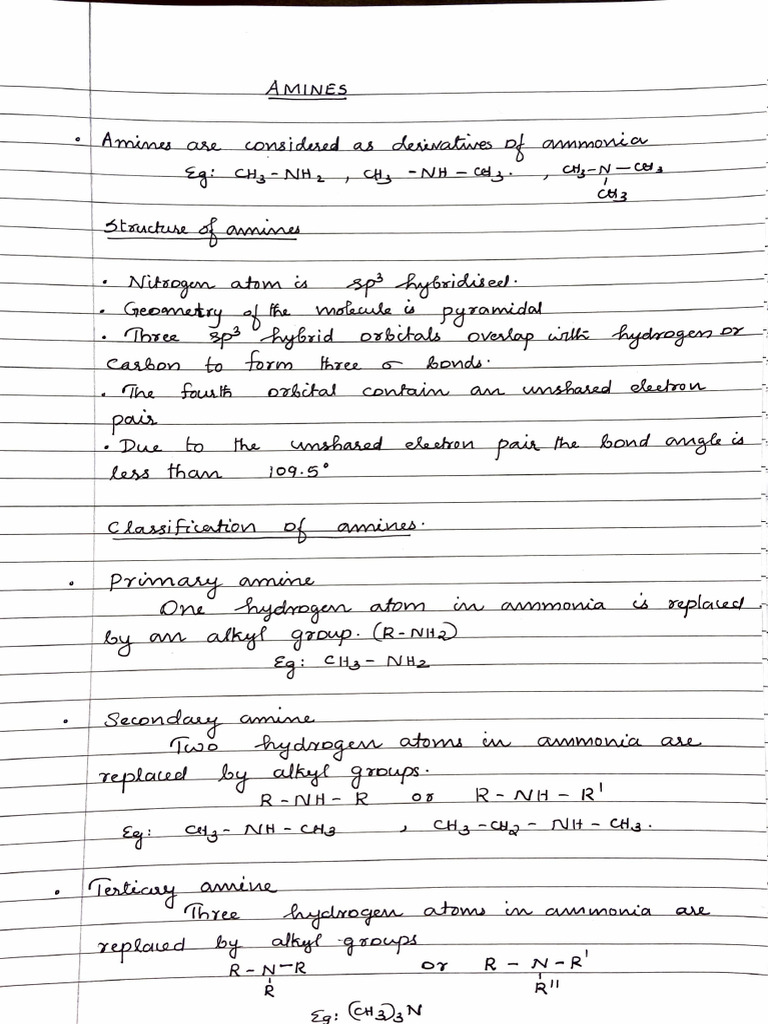 AMINES
• Amines are considered as derivatives of ammonia
Eg: CH₃-NH₂ , CH₃ -NH - CH₃. , CH₃-N-CH₃
CH₃
Structure of amines
• Nitrogen atom is sp³ hybridised.
• Geometry of the molecule is pyramidal
• Three sp³ hybrid orbitals overlap with hydrogen or
carbon to form three σ bonds.
• The fourth orbital contain an unshared electron
pair
• Due to the unshared electron pair the bond angle is
less than 109.5°
Classification of amines.
• Primary amine
One hydrogen atom in ammonia is replaced
by an alkyl group. (R-NH2)
Eg: CH3- NH2
• Secondary amine
Two hydrogen atoms in ammonia are
replaced by alkyl groups.
R-NH-R or R-NH-R'
Eg: CH3- NH-CH3 , CH3-CH2-NH-CH3.
• Tertiary amine
Three hydrogen atoms in ammonia are
replaced by alkyl groups
R-N-R or R-N-R'
R R"
Eg: (CH3)3N